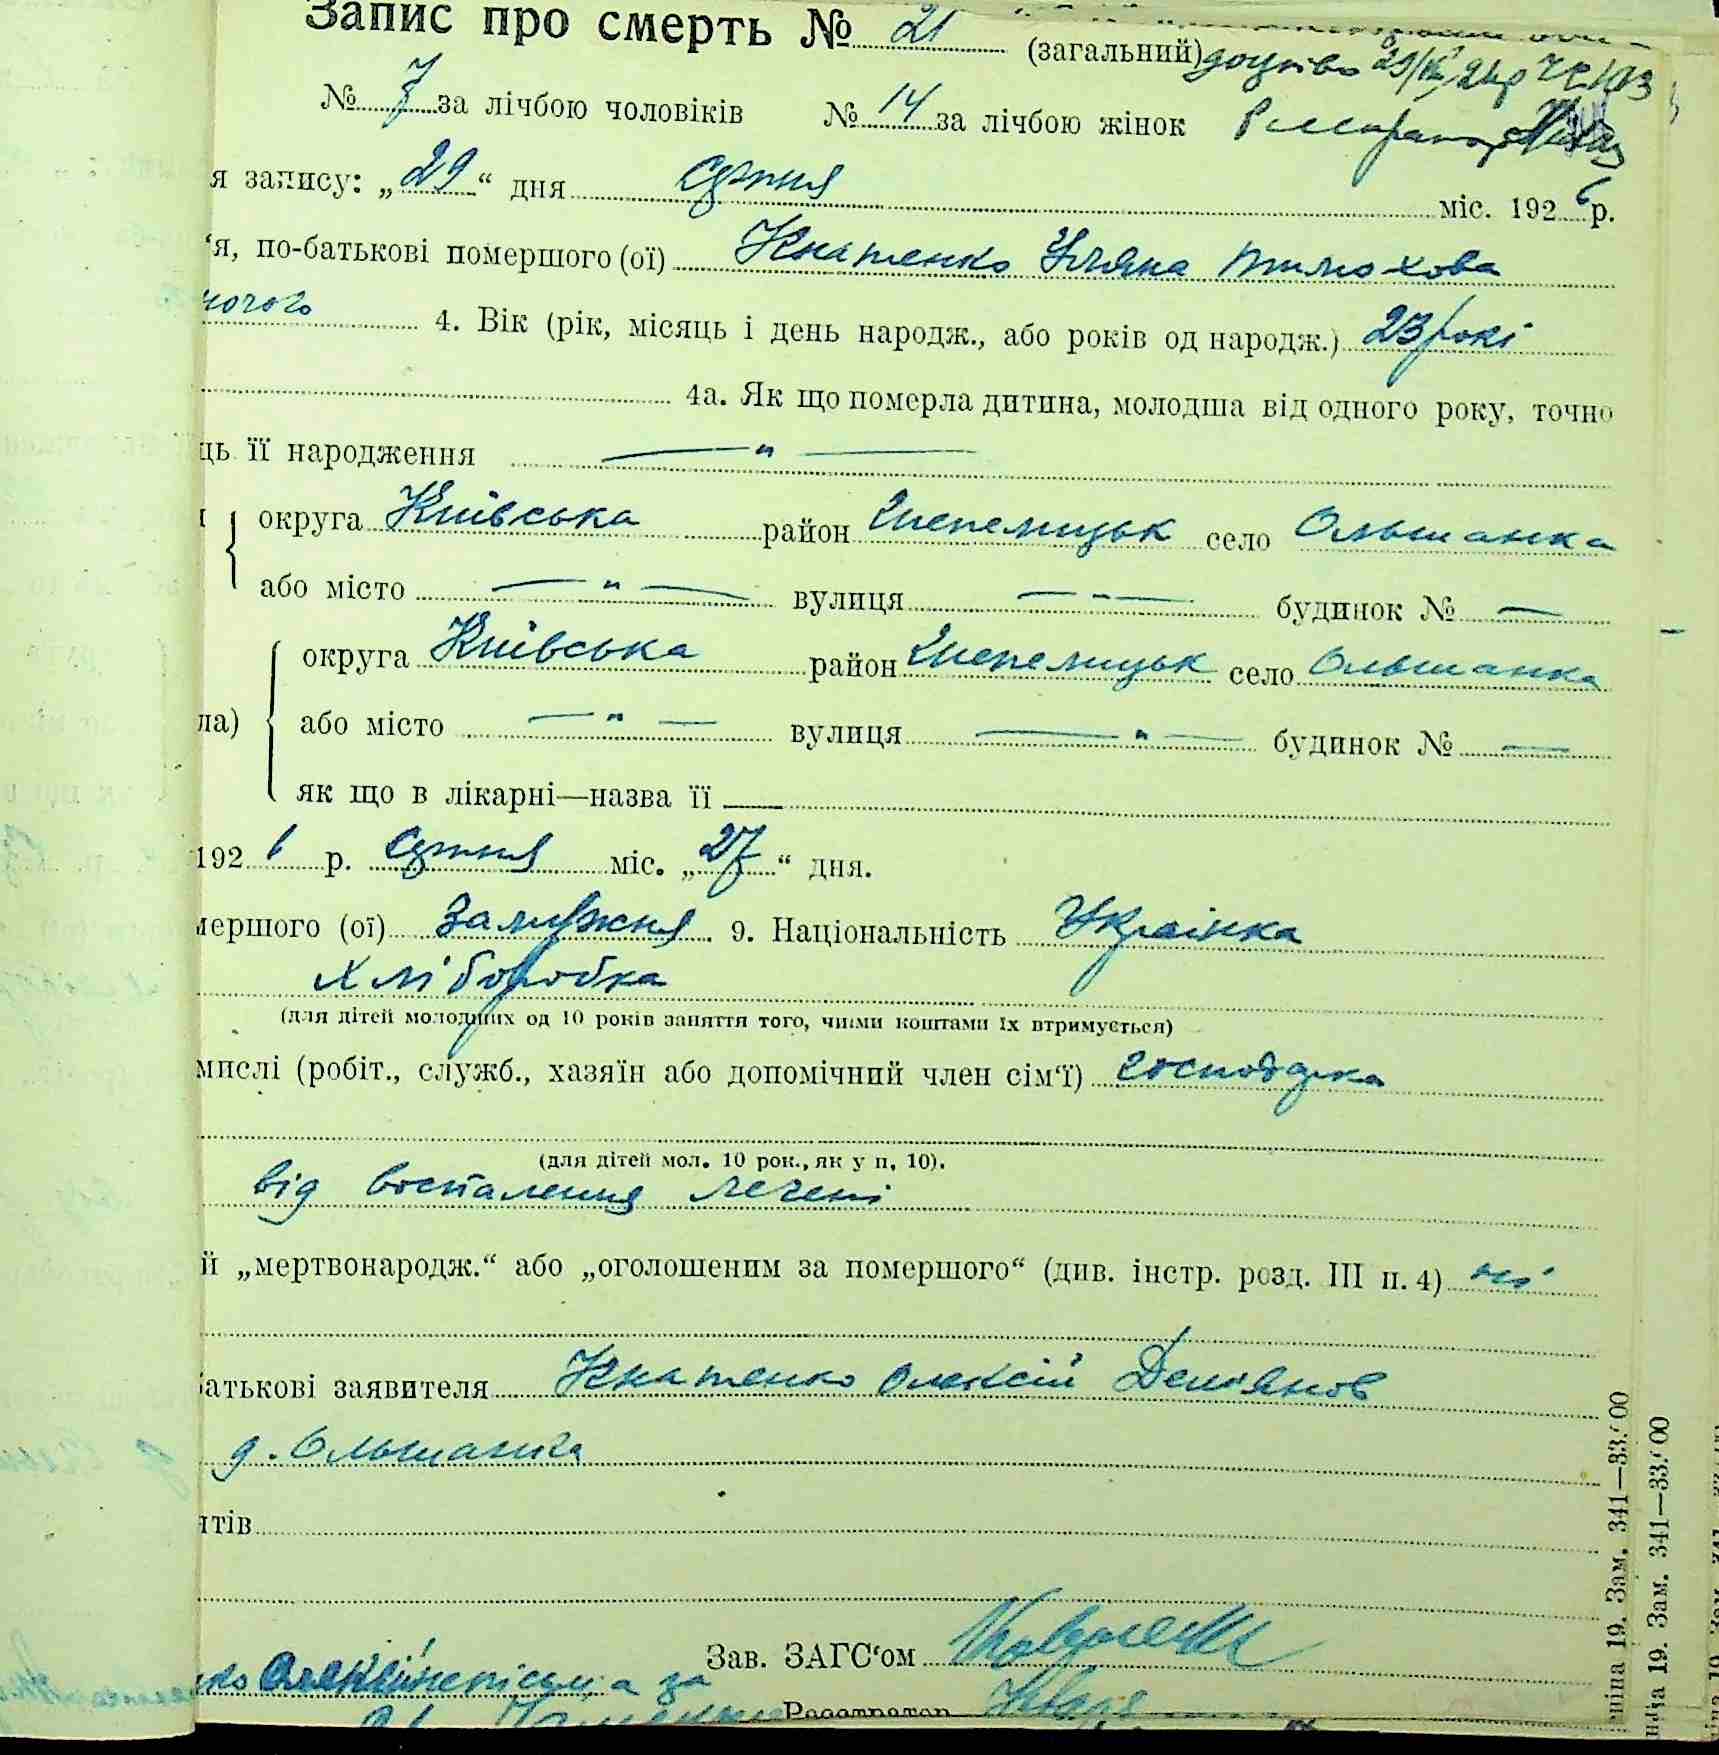 Запис про смерть № 21 (загальний)
№ 7 за лічбою чоловіків № 14 за лічбою жінок
я запису: „29“ дня серпня міс. 1926 р.
‘я, по-батькові помершого (ої) Кнатенко Уляна Тимохова
ночого 4. Вік (рік, місяць і день народж., або років од народж.) 23 рокі
4а. Як що померла дитина, молодша від одного року, точно
ць її народження — „ —
округа Київська район Шепелицьк село Ольшанка
або місто — „ — вулиця — „ — будинок № —
округа Київська район Шепелицьк село Ольшанка
ла) або місто — „ — вулиця — „ — будинок № —
як що в лікарні—назва її —
1926 р. серпня міс. „27“ дня.
мершого (ої) Замужня. 9. Національність Українка
Хліборобка
(для дітей молодших од 10 років заняття того, чиїми коштами їх втримується)
мислі (робіт., служб., хазяїн або допомічний член сім‘ї) господарка
(для дітей мол. 10 рок., як у п. 10).
від воспаления печені
й „мертвонародж.“ або „оголошеним за помершого“ (див. інстр. розд. III п. 4) ні
батькові заявителя Кнатенко Олексій Дем'янов
д. Ольшанка
нтів
Зав. ЗАГС‘ом
за
Реєстратор
19. Зам. 341—33.000
19. Зам. 341—33.000